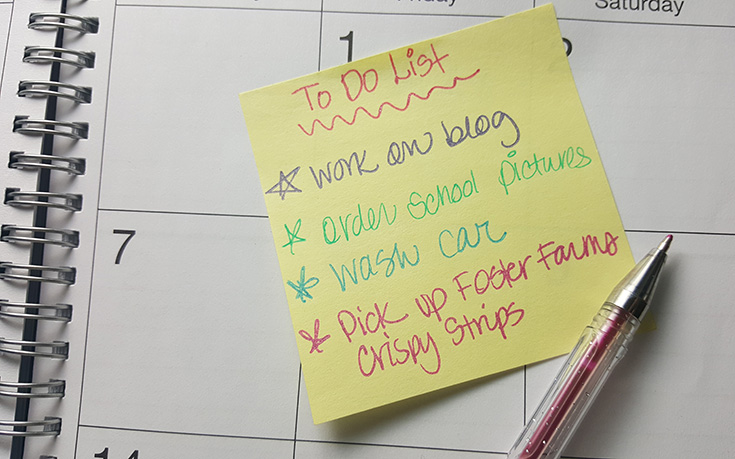 Saturday
1
To Do List
work on blog
order school pictures
wash car
Pick up Foster Farms
Crispy Strips
7
14